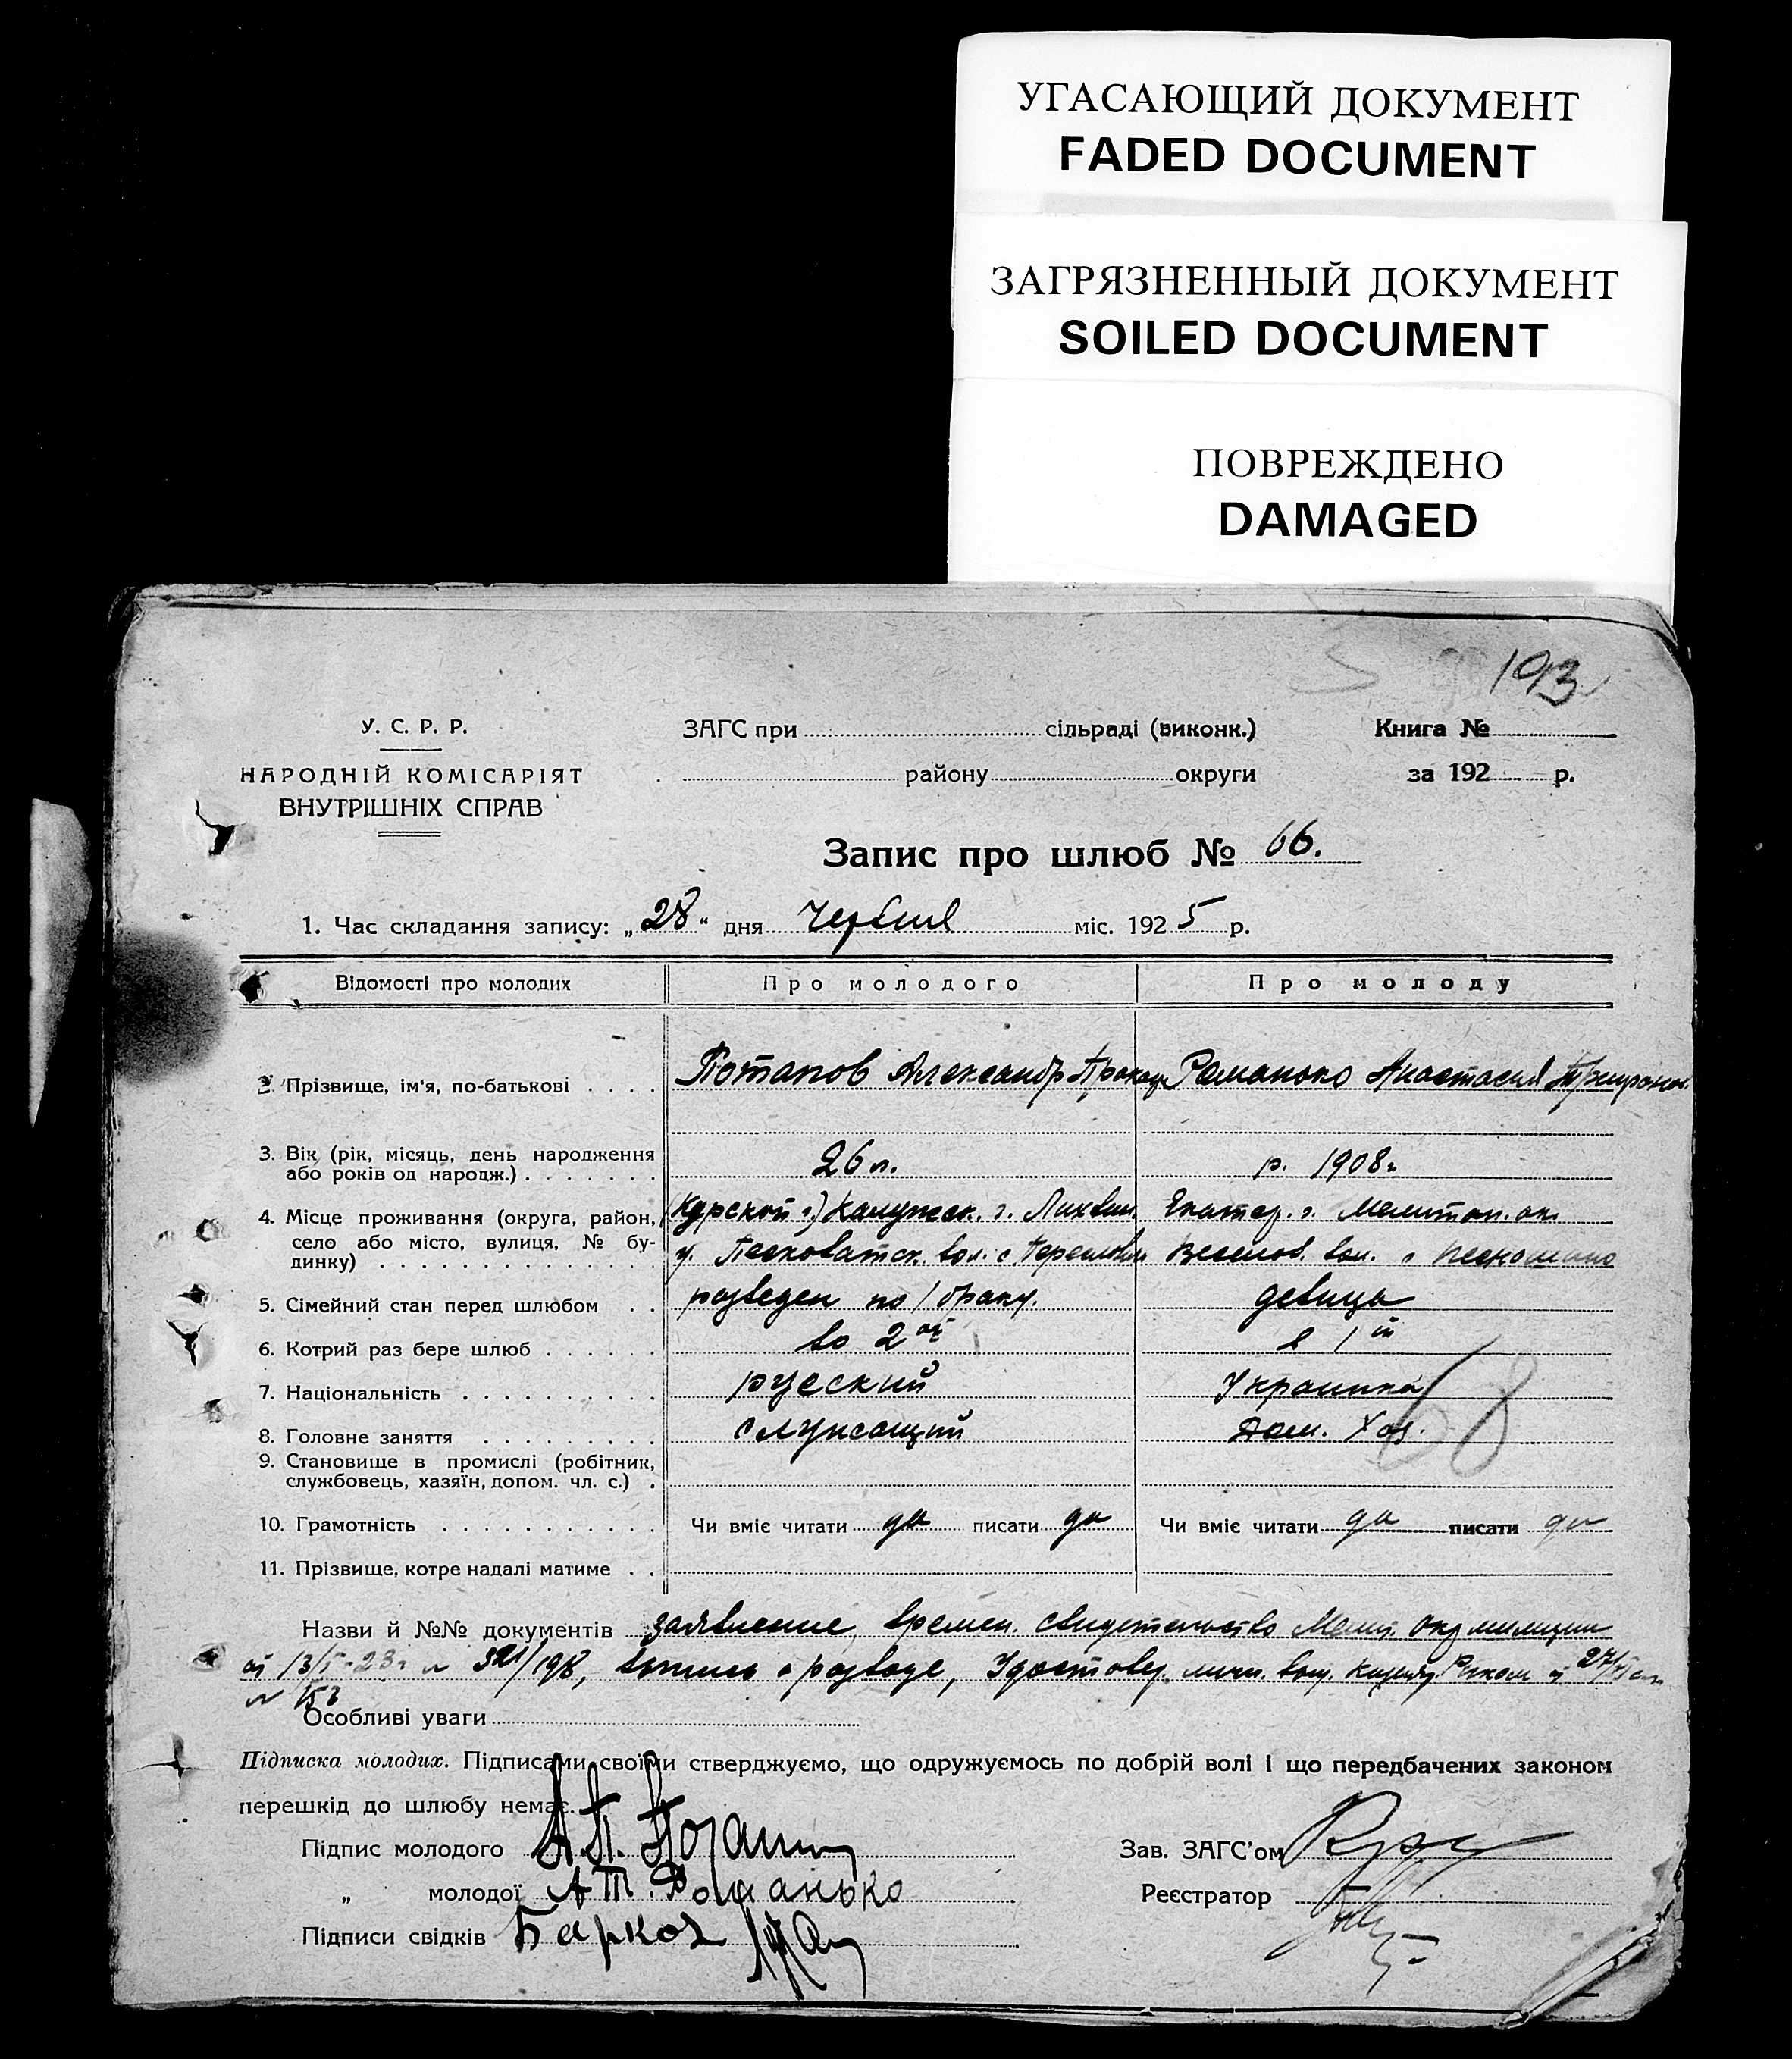 УГАСАЮЩИЙ ДОКУМЕНТ
FADED DOCUMENT
ЗАГРЯЗНЕННЫЙ ДОКУМЕНТ
SOILED DOCUMENT
ПОВРЕЖДЕНО
DAMAGED
193
У. С. Р. Р.
НАРОДНІЙ КОМІСАРІЯТ
ВНУТРІШНІХ СПРАВ
ЗАГС при сільраді (виконк.)
району округи
Книга №
за 192 р.
Запис про шлюб № 66.
1. Час складання запису: „28“ дня Червня міс. 1925 р.
Відомості про молодих Про молодого Про молоду
2. Прізвище, ім'я, по-батькові . . . . Потапов Александр Романько Анастасия
3. Вік (рік, місяць, день народження 26 л. р. 1908 г.
або років од народж.) . . . . . . .
4. Місце проживання (округа, район, (Курской г.) Калужск. г. Лихвин. Екатер. г. Мелитоп. ок.
село або місто, вулиця, № бу- у. Песковатск. вол. с Веселов. вол. с
динку) . . . . . . . . . . . . . .
5. Сімейний стан перед шлюбом . . разведен по 1 браку. девица
6. Котрий раз бере шлюб . . . . . . во 2ой в 1й
7. Національність . . . . . . . . . . русский Украинка
8. Головне заняття . . . . . . . . . служащий Дом. Хоз.
68
9. Становище в промислі (робітник,
службовець, хазяїн, допом. чл. с.) .
10. Грамотність . . . . . . . . . . . Чи вміє читати да писати да Чи вміє читати да писати да
11. Прізвище, котре надалі матиме . .
Назви й №№ документів заявление, времен. свидетельство Мелит. Окр милиции
от 13/5-23 г № 321/198, выпись о разводе, Удостовер. личн. выд. Риком от 27/
№ 153
Особливі уваги
Підписка молодих. Підписами своїми стверджуємо, що одружуємось по добрій волі і що передбачених законом
перешкід до шлюбу немає.
Підпис молодого А.П. Потапов
Зав. ЗАГС'ом
„ молодої А Т. Романько
Реєстратор
Підписи свідків